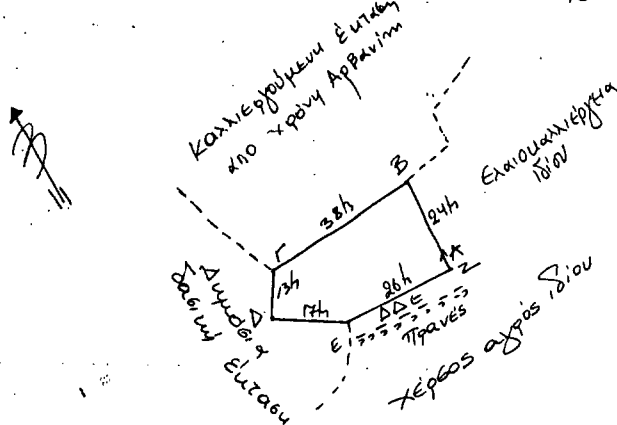 Καλλιεργούμενη έκταση
από Χρόνη Αρβανίτη
Β
Β
Ελαιοκαλλιέργεια
ιδίου
38μ
24μ
Γ
Α
Ζ
13μ
26μ
Δ
17μ
Ε
ΔΔΕ
Πρανές
Δημόσια
δασική
έκταση
χέρσος αγρός ιδίου